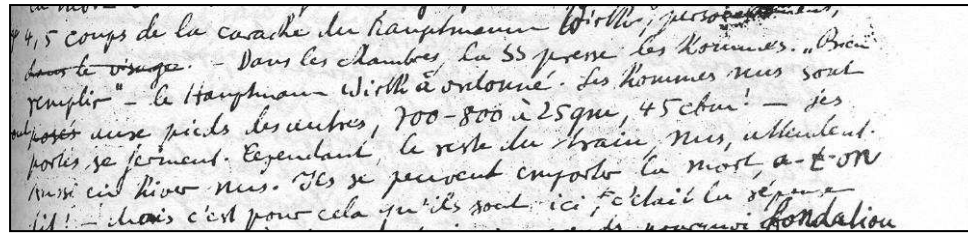 4,5 coups de la cravache du Hauptmann Wirth, personellement,
dans le visage. – Dans les chambres, la SS presse les hommes. „Bien
remplir“ – le Hauptmann Wirth a ordonné. Les hommes nus sont
posés aux pieds des autres, 700–800 à 25qm, 45cbm! – Les
portes se ferment. Cependant, le reste du train, nus, attendent.
aussi en hiver nus. Ils se peuvent emporter la mort, a-t-on
dit! – Mais c'est pour cela qu'ils sont ici, c'était la réponse
pourquoi fondation